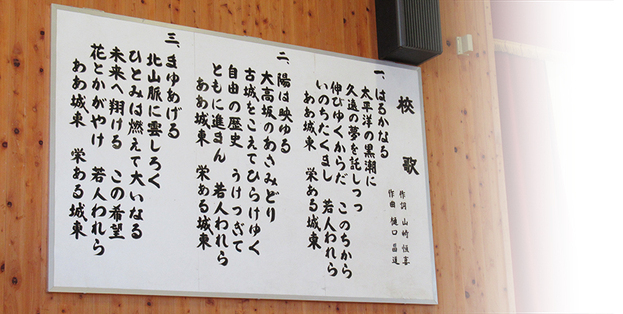 校歌
作詞 山崎 恒喜
作曲 樋口 昌道
一、はるかなる
太平洋の黒潮に
久遠の夢を託しつつ
伸びゆくからだ このちから
いのちたくまし 若人われら
ああ城東 栄ある城東
二、陽は映ゆる
大高坂のあさみどり
古城をこえてひらけゆく
自由の歴史 うけつぎて
ともに進まん 若人われら
ああ城東 栄ある城東
三、まゆあげる
北山脈に雲しろく
ひとみは燃えて大いなる
未来へ翔ける この希望
花とかがやけ 若人われら
ああ城東 栄ある城東